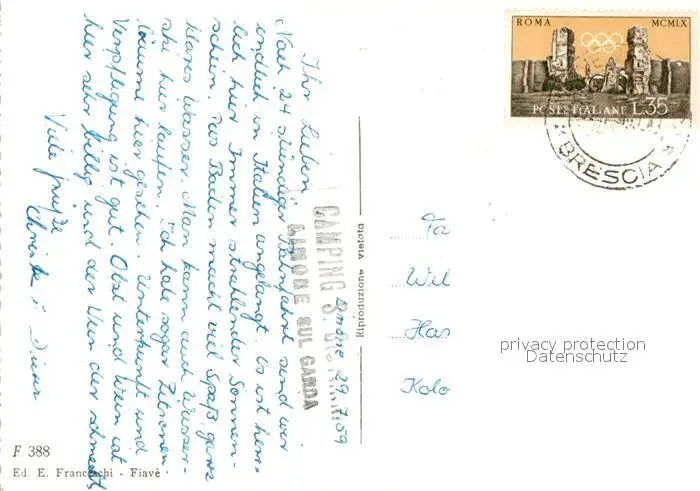 Limone 29.7.59
Ihr Lieben
Nach 24 stündiger Bahnfahrt sind wir
endlich in Italien angelangt. Es ist herr-
lich hier. Immer strahlender Sonnen-
schein. Das Baden macht viel Spaß, ganz
klares Wasser. Man kann auch Wasser-
ski hier laufen. Ich habe sogar Zitronen-
bäume hier gesehen. Unterkunft und
Verpflegung ist gut. Obst und Wein ist
hier sehr billig und der Wein der schmeckt
Viele Grüße
Christa u. Dieter
CAMPING
LIMONE SUL GARDA
Riproduzione vietata
ROMA MCMLIX
POSTE ITALIANE L.35
BRESCIA
Fa
Wil
Has
Kolo
privacy protection
Datenschutz
F 388
Ed. E. Franceschi - Fiavè